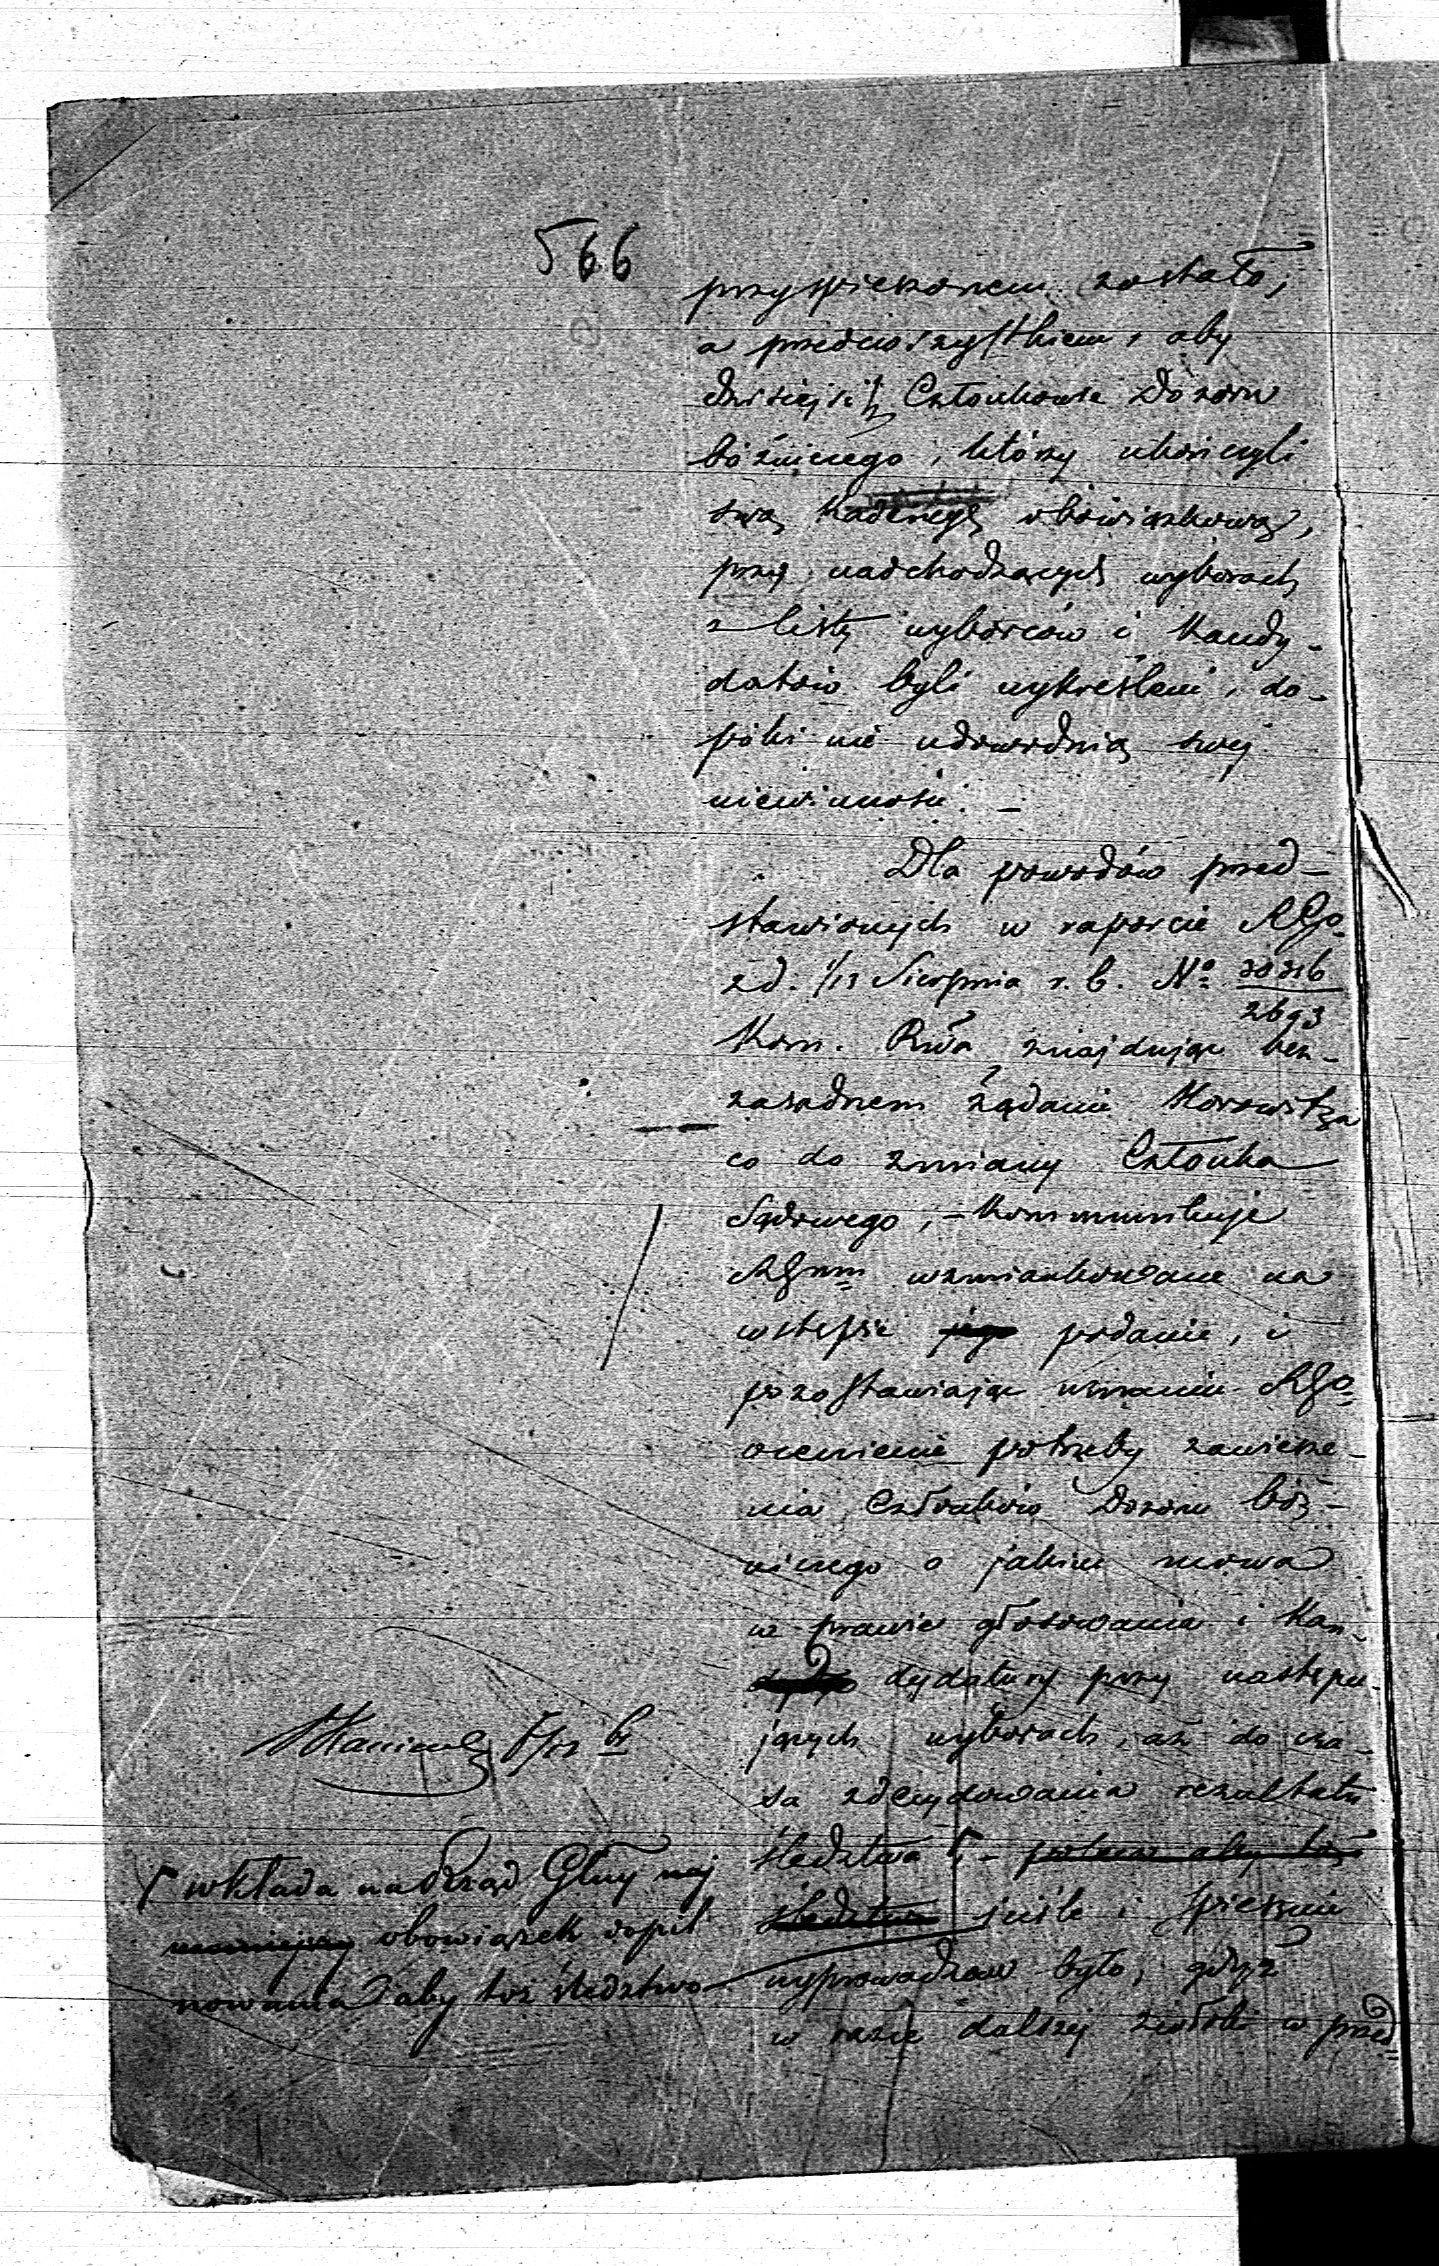 566
przyspieszonem zostało,
a przedewszystkiem, aby
dzisiejsi Członkowie Dozoru
bóźniczego, którzy ukończyli
swą kadencyę obowiązkową,
przy nadchodzących wyborach
z listy wyborców i kandy-
datów byli wykreśleni, do-
póki nie udowodnią swej
niewinności. —
Dla powodów przed-
stawionych w raporcie RGo
z d. 1/13 Sierpnia r. b. No
Kom. Rwa znajdując bez-
zasadnem żądanie Horowitza
co do zmiany Członka
Sądowego, – kommunikuje
wzmiankowane na
wstępie jego podanie, i
pozostawiając uznaniu RGo
ocenienie potrzeby zawiesze-
nia Członków Dozoru bóź-
niczego o jakim mowa
w prawie głosowania i kan-
dydatury przy następu-
jących wyborach, aż do cza-
su zdecydowania rezultatu
śledztwa – potem aby toż
śledztwo ściśle i spiesznie
wyprowadzone było, gdyż
w razie dalszej zwłoki w przed=
wkłada na Rząd Glny
obowiązek dopil
nowania aby toż śledztwo